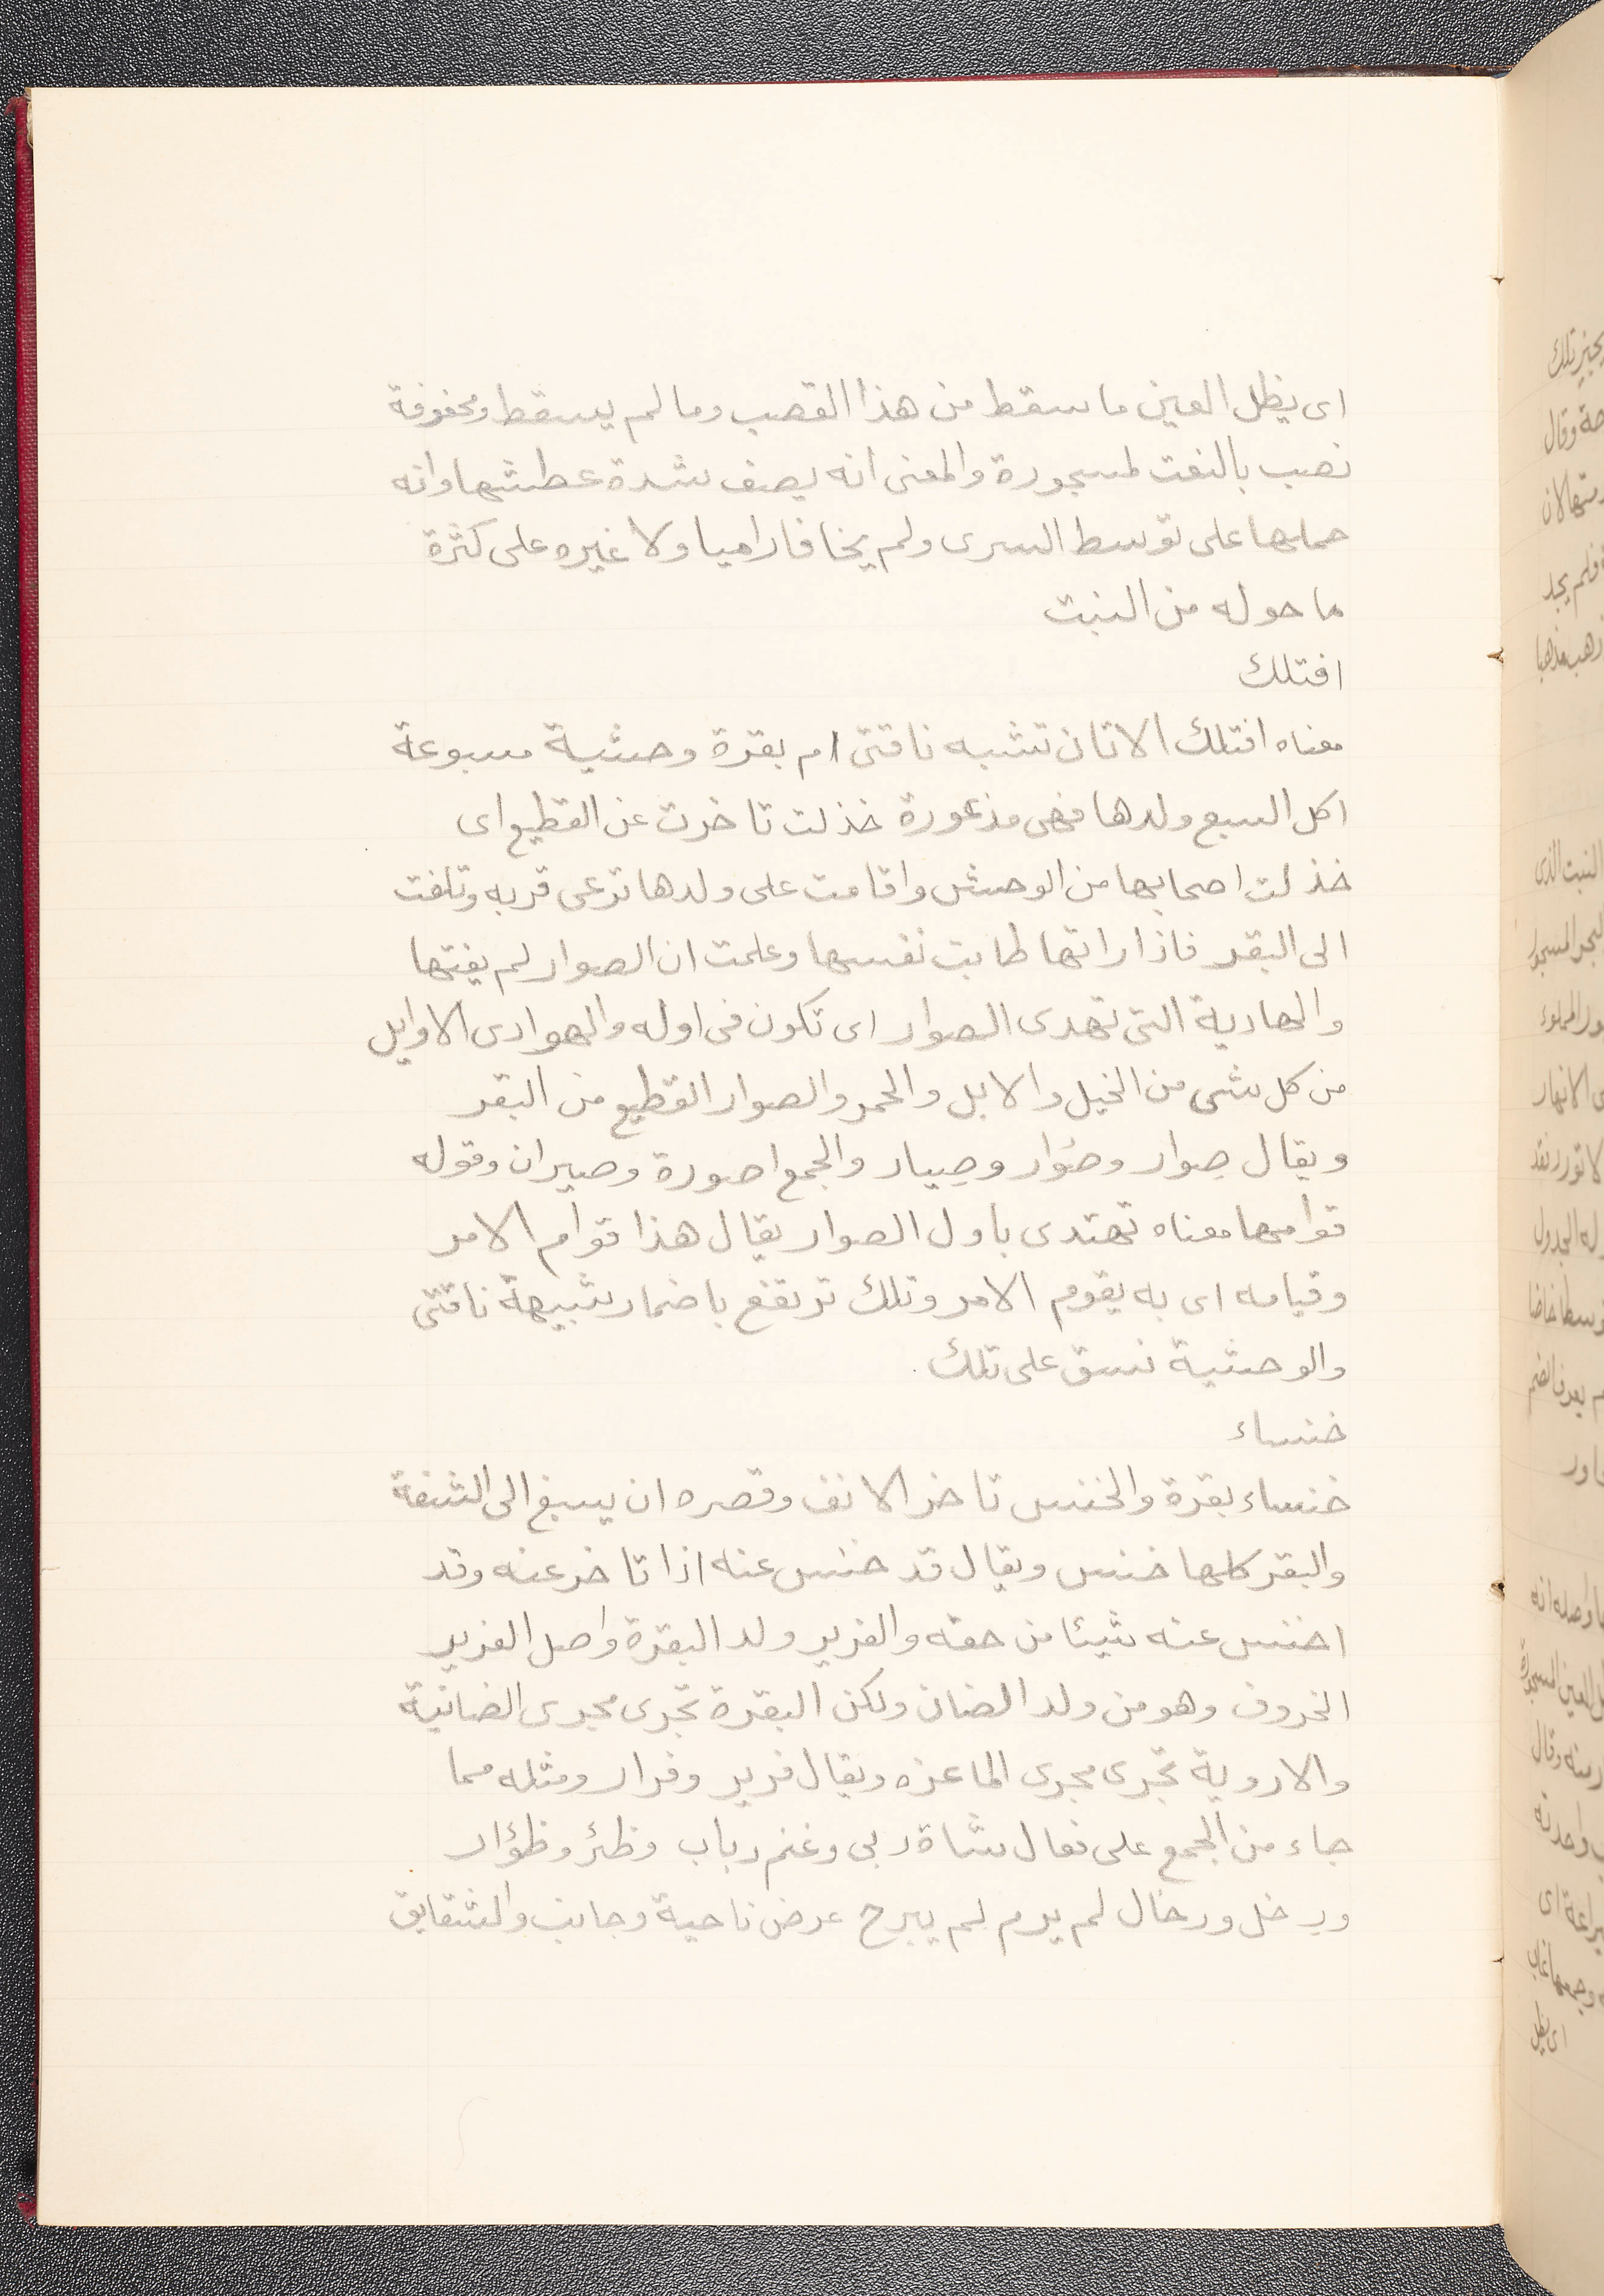 اى يظل العين ما سقط من هذا القصب وما لم يسقط ومحفوفة
نصب بالنعت لمسجورة والمعنى انه يصف شدة عطشها وانه
حملها على توسط السرى ولم يخافا راميا ولا غيره على كثرة
ما حوله من النبت
افتلك
معناه افتلك الاتان تشبه ناقتى ام بقرة وحشية مسبوعة
اكل السبع ولدها فهى مذعورة خذلت تاخرت عن القطيع اى
خذلت اصحابها من الوحش واقامت على ولدها ترعى قربه وتلفت
الى البقر فاذا راتها طابت نفسها وعلمت ان الصوار لم يفتها
والهادية التى تهدى الصوار اى تكون فى اوله والهوادى الاوايل
من كل شى من الخيل والابل والحمر والصوار القطيع من البقر
ويقال صِوار وصُوار وصِيار والجمع اصورة وصيران وقوله
قوامها معناه تهتدى باول الصوار يقال هذا قوام الامر
وقيامه اى به يقوم الامر وتلك ترتفع باضمار شبيهة ناقتى
والوحشية نسق على تلك.
خنساء
خنساء بقرة والخنس تاخر الانف وقصره ان يسبغ الى الشفة
والبقر كلها خنس ويقال قد خنس عنه اذا تاخر عنه وقد
اخنس عنه شيئا من حقه والفرير ولد البقرة واصل الفرير
الخروف وهو من ولد الضان ولكن البقرة تجرى مجرى الضانية
والاروية تجرى مجرى الماعزه ويقال فرير وفرار ومثله مما
جاء من الجمع على فعال شاة ربى وغنم رباب وظئر وظؤار
ورخل ورخال لم يرم لم يبرح عرض ناحية وجانب والشقايق